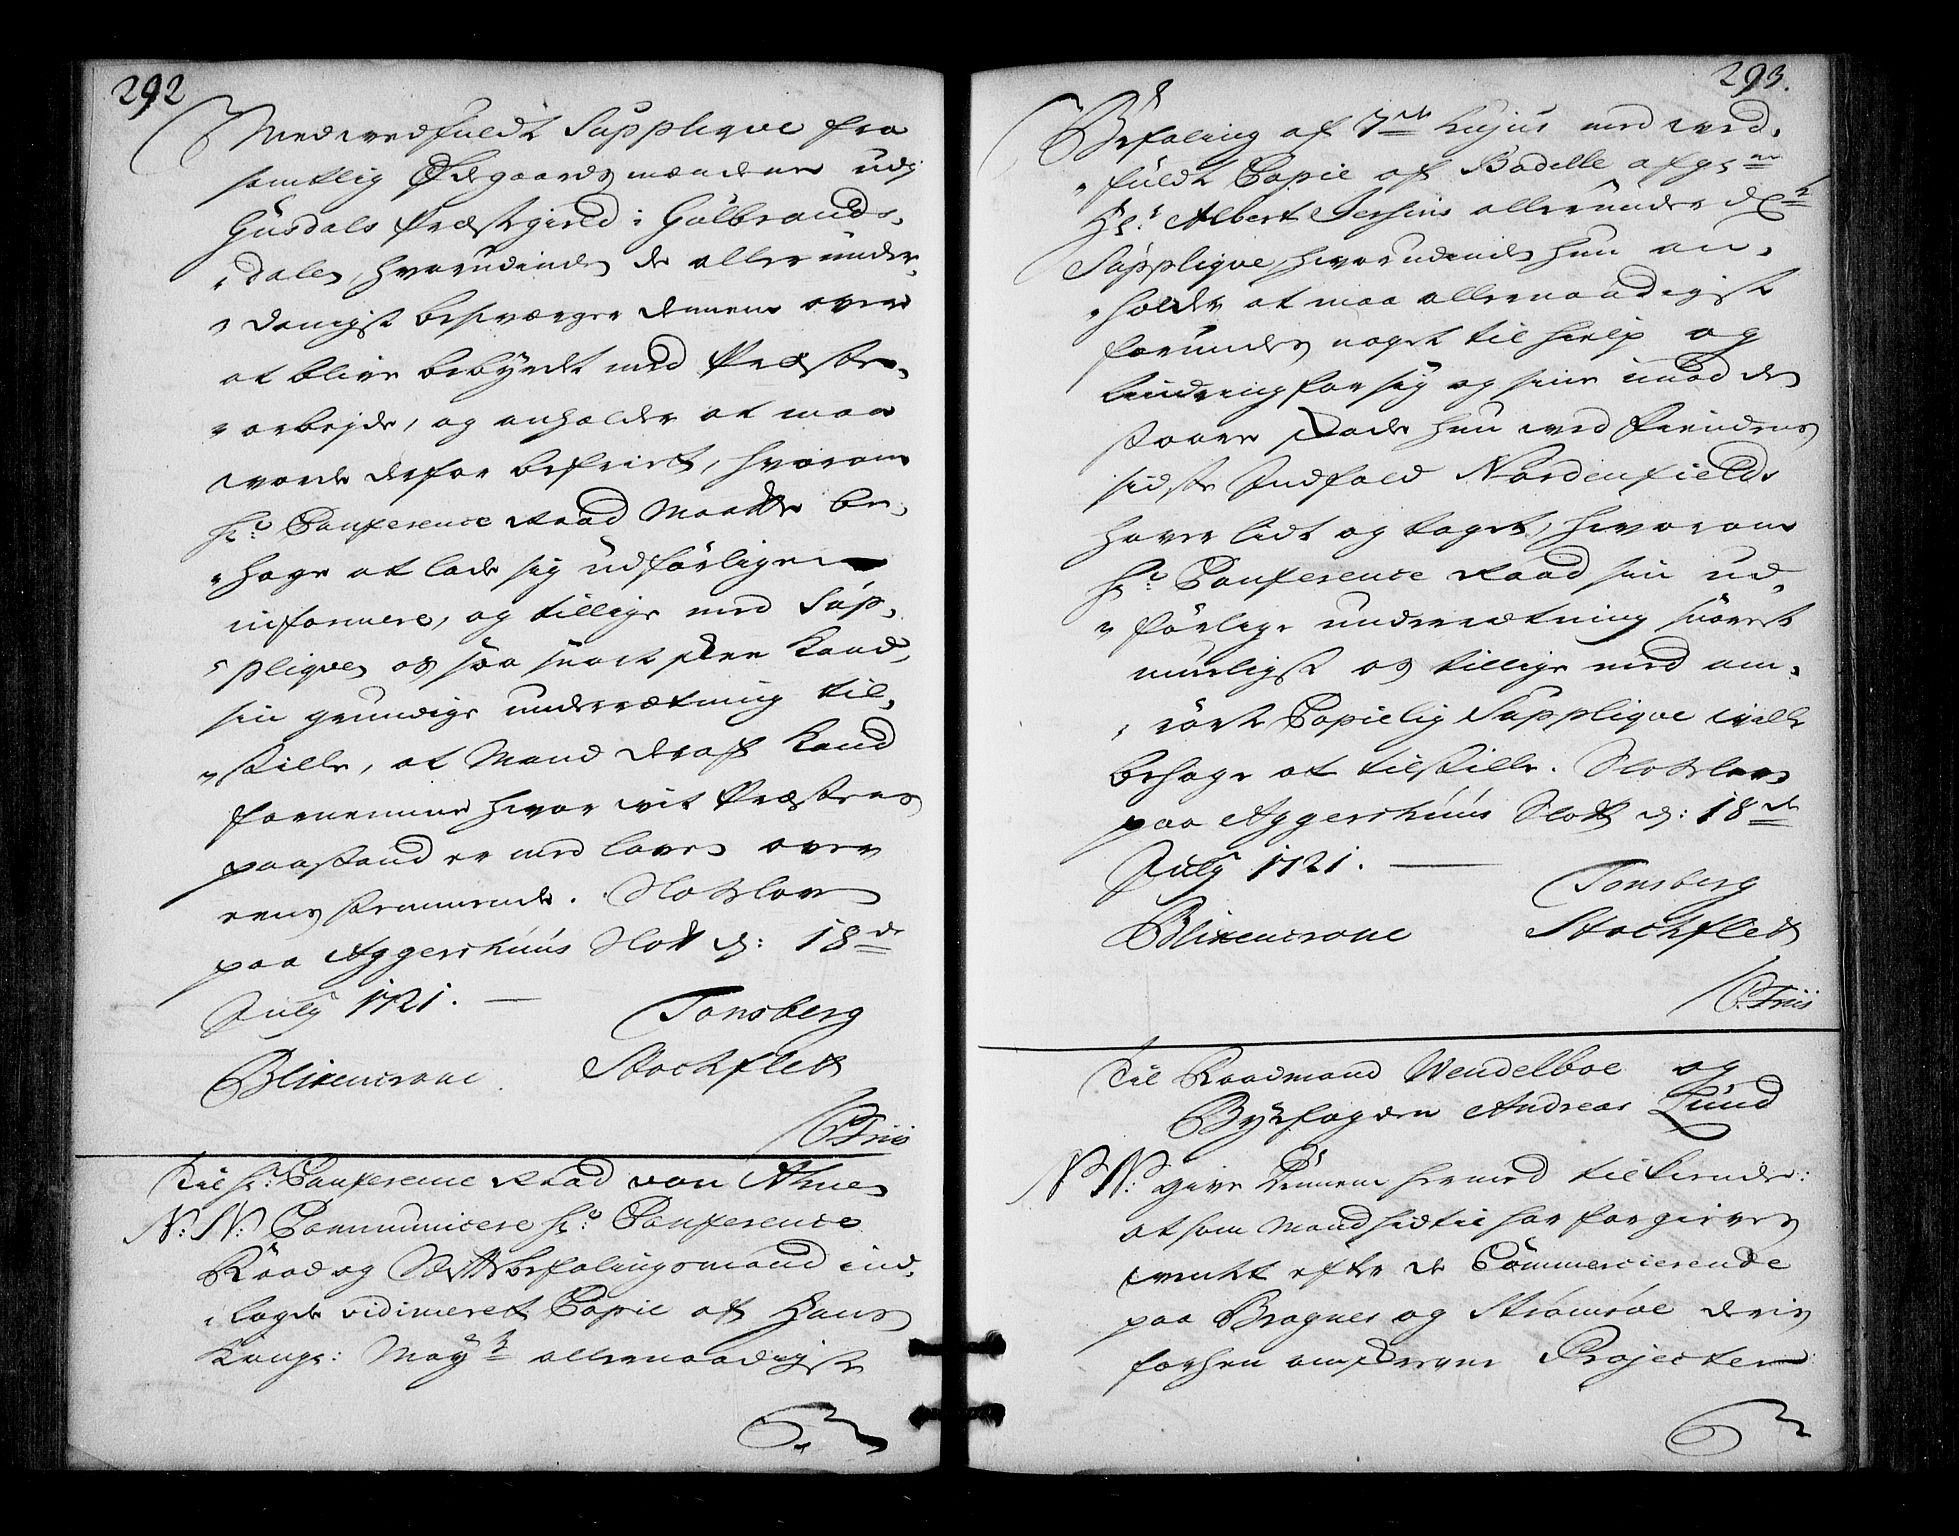 292
Medvedfuldt Supplique fra
samtlig Ødegaards mændene udj
Gusdals Præstegield i Gulbrands,
"dalen, hvorudinden de allerunder,
"danigst besværger dennem over
at blive bebyrdet med Præste,
"arbejde, og anholder at maa
vorde derfor befriet, hvorom
hr: Conference Raad Maatte be,
"hage at lade sig udförligen
informere, og tillige med Sup,
"pliqven os saa snart skee Kand,
sin grundige underrætning til,
"stille, at Mand deraf Kand
fornemme hvor vit Præstens
paastand er med loven over
eens stemmende. Slotzloven
paa Aggershuus Slott d: 18de
July 1721. Tonsberg
Blixencrone Stochflett
C. Friis
Til hr: Conference Raad von Ahnen
N: N: Communicere hr: Conference
Raad og Stiftsbefalingsmand ind,
"lagde vidimeret Copie af Hans
Kongl: Mayts allernaadigste
293.
Befaling af 7de hujus med ved,
"fuldt Copie af Bodelle afgne
Hr: Albert Jersins allerunderdste
Supplique, hvorudinden hun an,
"holder at maa allernaadigst
forundes noget til hielp og
lindring for sig og sine imod den
stoore Skade hun ved Fiendens
sidste Indfald Nordenfields
haver lidt og taget, hvorom
hr: Conference Raad sin ud,
"förlige underrætning snarest
mueligst os tillige med om,
"rörte Copielig Supplique ville
behage at tilstille. Slotzloven
paa Aggershuus Slott d: 18de
July 1721. Tonsberg
Blixencrone Stochflett
C. Friis
Til Raadmand Wendelboe og
Byefogden Andreas Lund
N N: give Dennem hermed tilkiende:
at som Mand hidtil har forgieves
ventet efter de Commercierende
paa Bragnes og Strömsöe deris
forsen om Deres Projecter